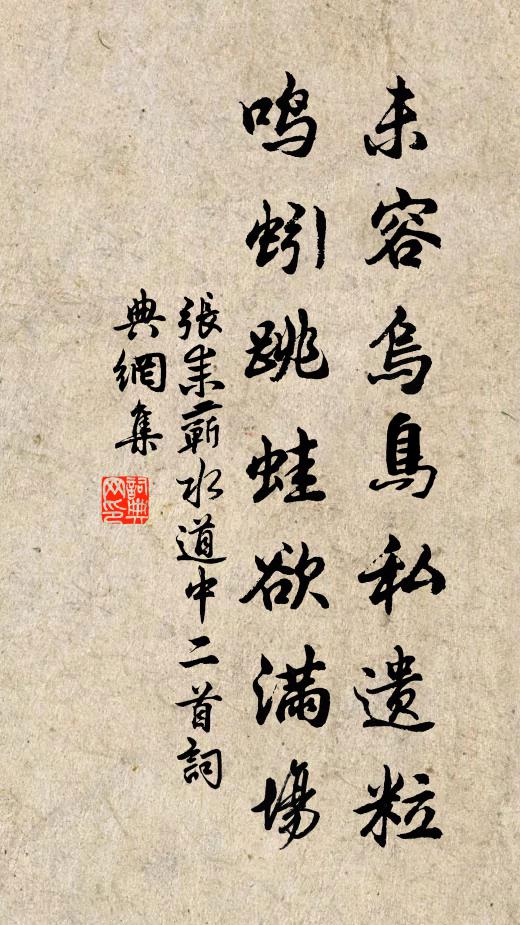 未容烏鳥私遺粒
鳴蚓跳蛙欲滿場
張耒蘄水道中二首詞
典網集
詞典
网印